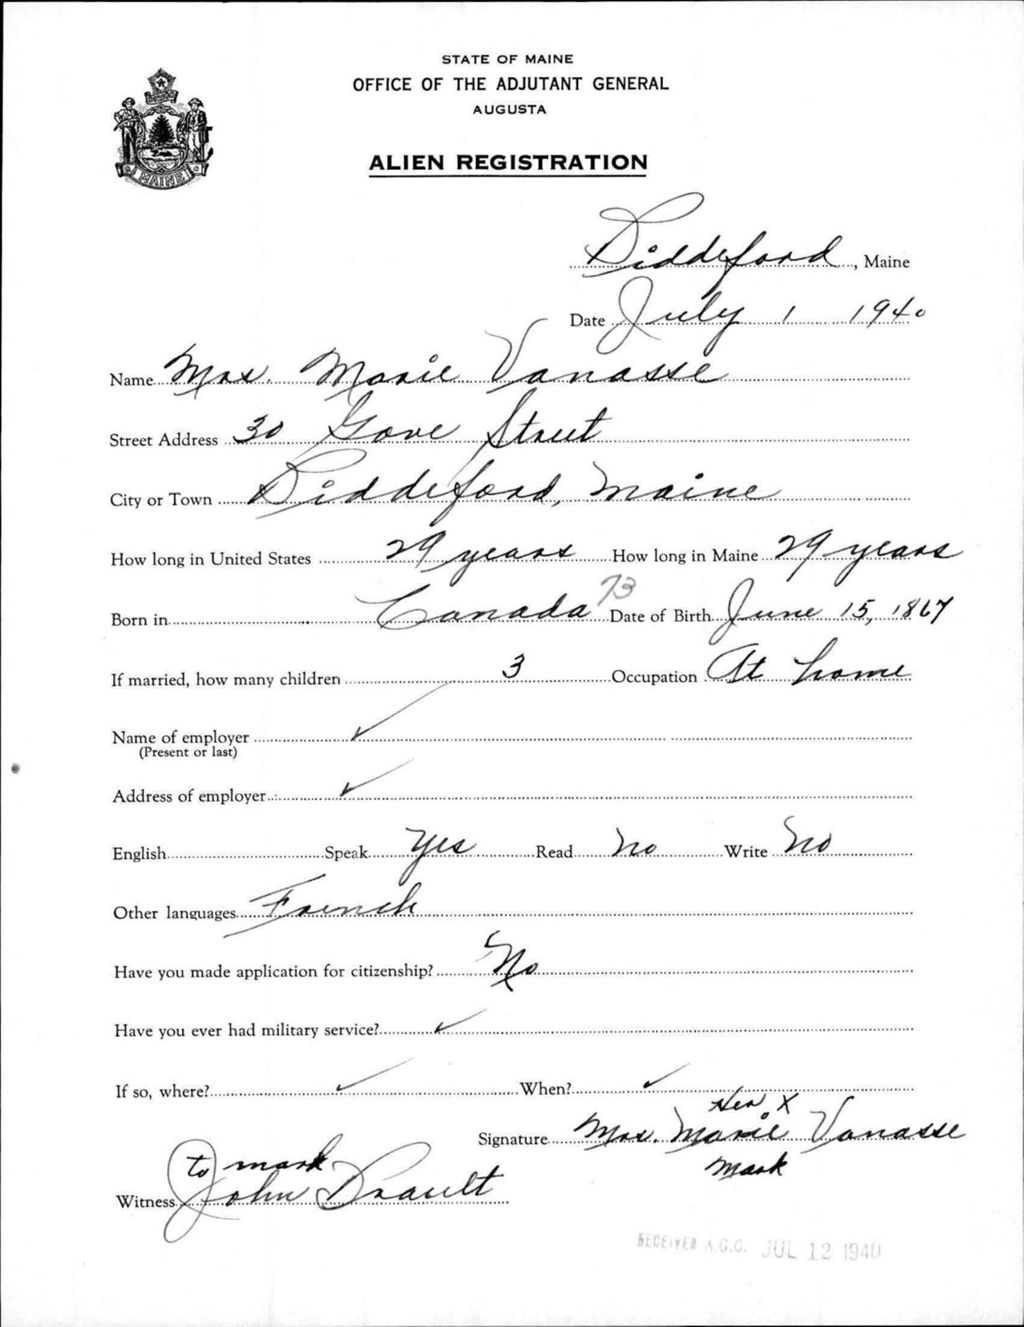 STATE OF MAINE
OFFICE OF THE ADJUTANT GENERAL
AUGUSTA
ALIEN REGISTRATION
MAINE
Biddeford, Maine
Date July 1 1940
Name Mrs. Marie Vanasse
Street Address 30 Gove Street
City or Town Biddeford, Maine
How long in United States 29 years How long in Maine 29 years
73
Born in Canada Date of Birth June 15, 1867
If married, how many children 3 Occupation At home
Name of employer
(Present or last)
Address of employer
English Speak Yes Read No Write No
Other languages French
Have you made application for citizenship? No
Have you ever had military service?
If so, where? When?
Her X
Signature Mrs. Marie Vanasse
mark
to mark
Witness John Drault
RECEIVED A.G.O. JUL 12 1940